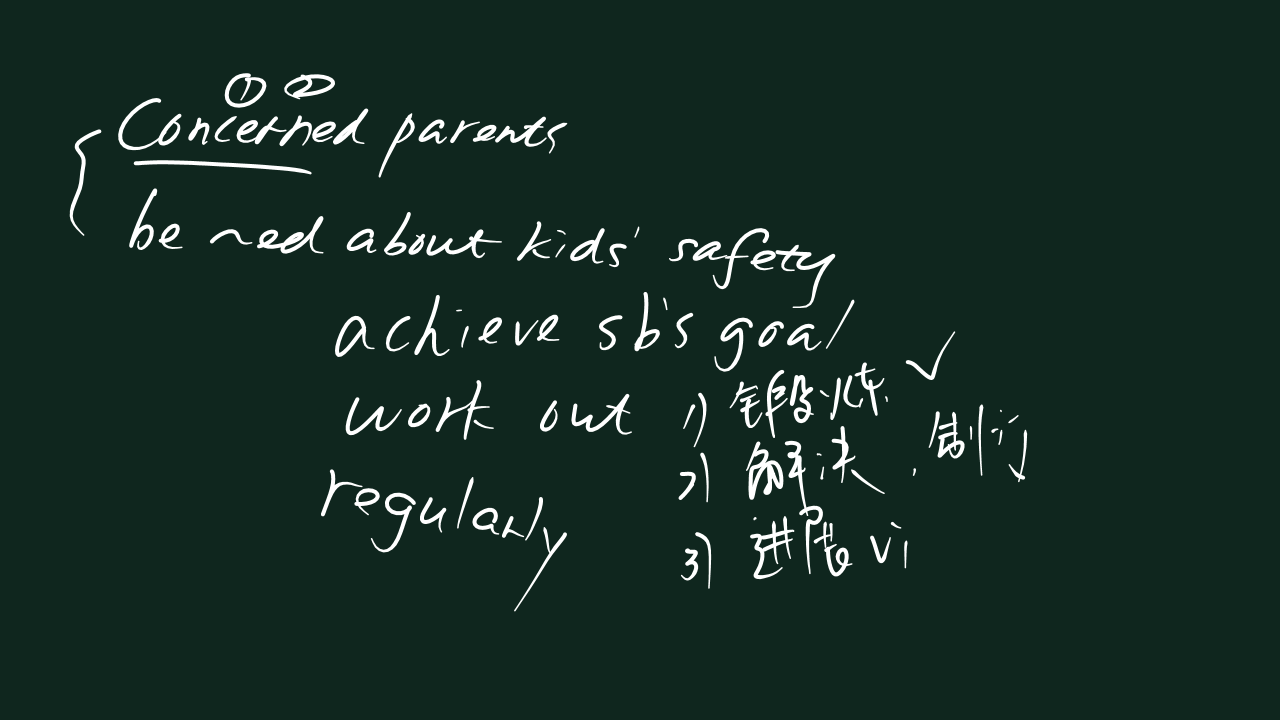 ① ②
Concerned parents
be ~ed about kids' safety
achieve sb's goal
work out 1) 锻炼 ✓
2) 解决,制订
3) 进展 vi
regularly